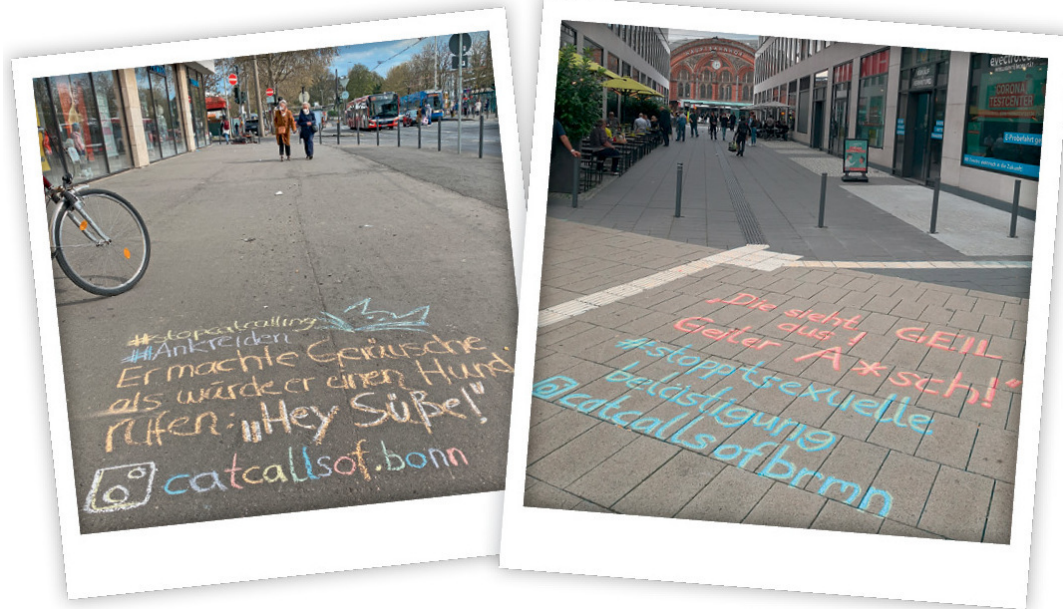 #stopcatcalling
#Ankreiden
Er machte Geräusche
als würde er einen Hund
rufen: „Hey Süße!"
catcallsof.bonn
HAUPTBAHNHOF
CORONA
TESTCENTER
„Die sieht GEIL
aus! Geiler A*sch!"
#stopptsexuelle
belästigung
@catcallsofbrmn